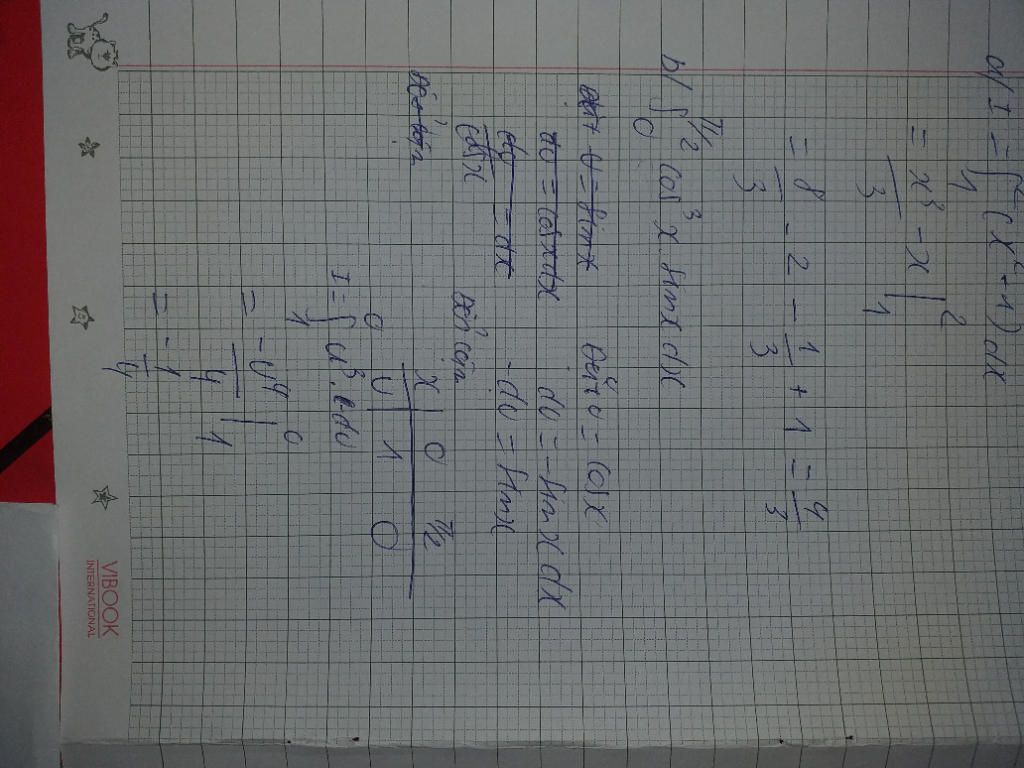 a/ I = ∫₁² (x² - 1) dx
= x³/3 - x |₁²
= 8/3 - 2 - 1/3 + 1 = 4/3
b/ ∫₀^π/2 cos³x . sinx dx
Đặt u = sinx
du = cosxdx
du/cosx = dx
Đổi cận
Đặt u = cosx
du = -sinx dx
-du = sinx
Đổi cận
x | 0 π/2
u | 1 0
I = ∫₁⁰ u³. -du
= -u⁴/4 |₁⁰
= -1/4
VIBOOK
INTERNATIONAL